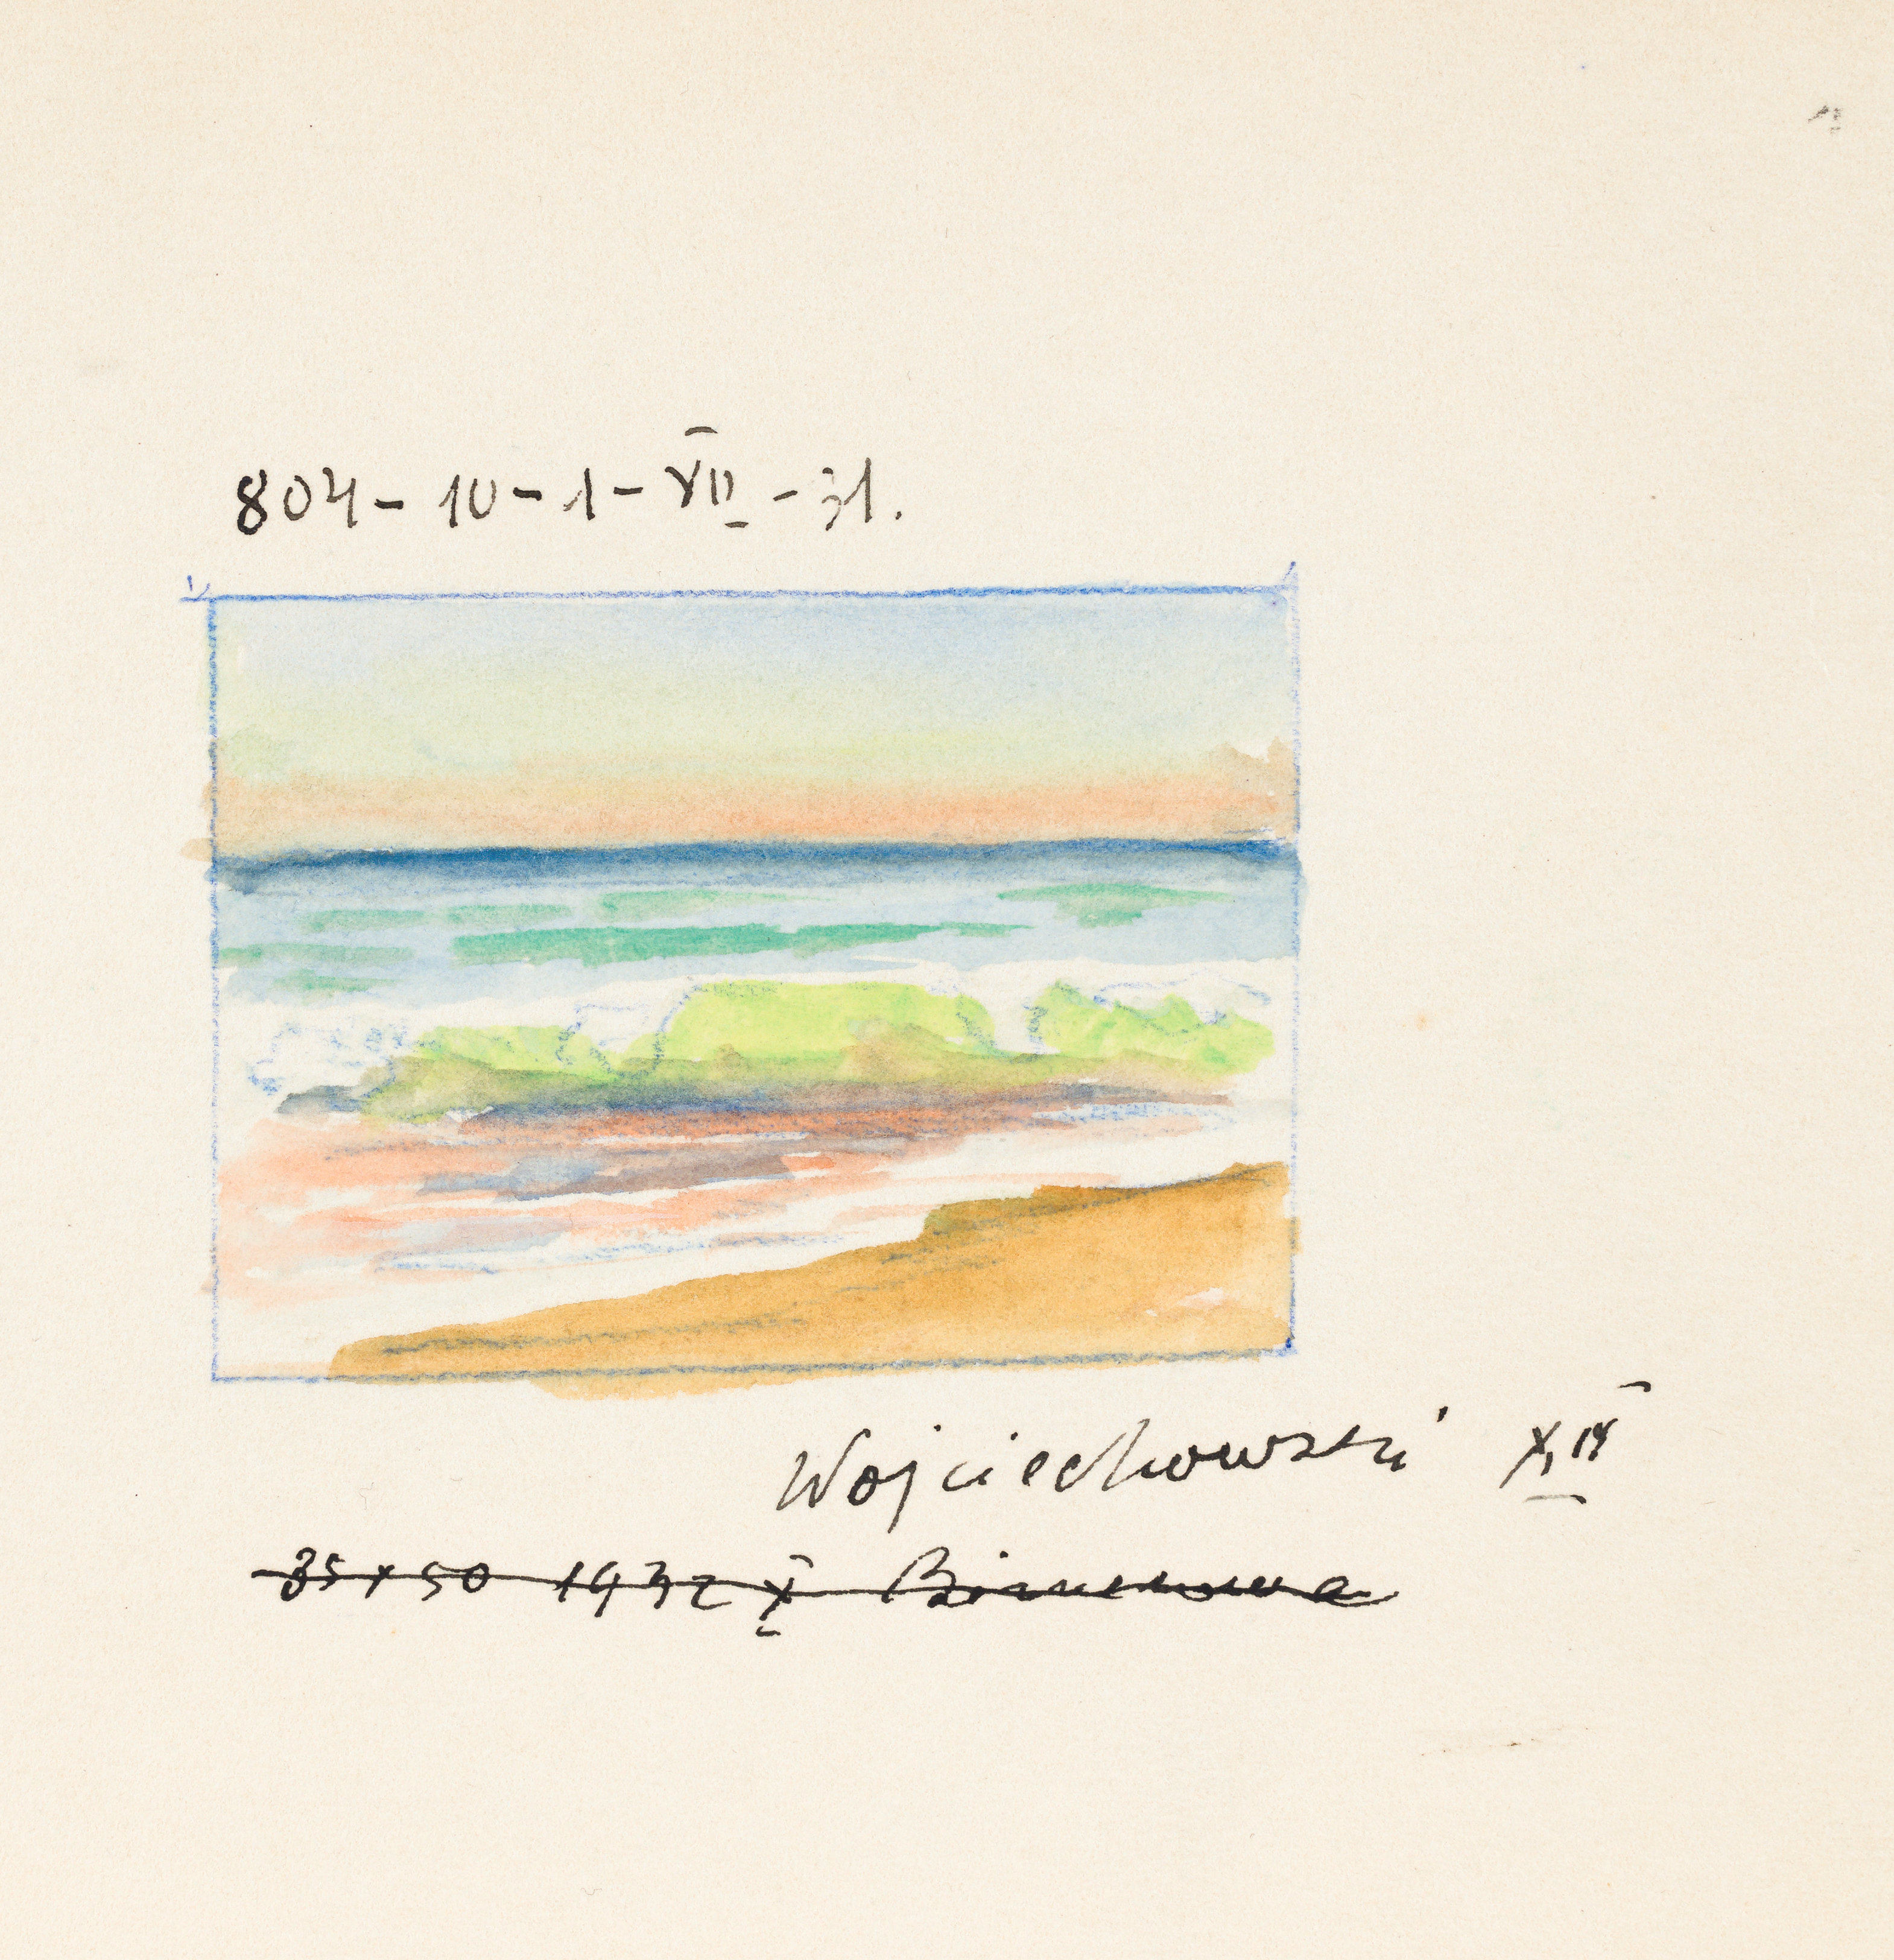 804 - 10 - 1 - XII - 31.
Wojciechowski
35 x 50 1932 X